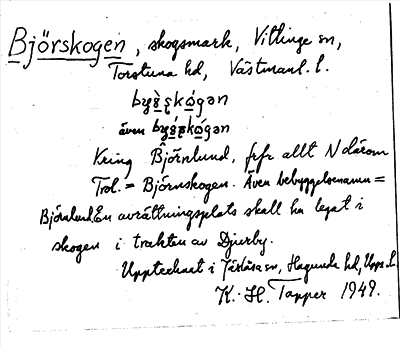 Björskogen, skogsmark, Vittinge sn,
Torstuna hd, Västmanl. l.
även
Kring Björnlund, frfr allt N därom
Trol. = Björnskogen. Även bebyggelsenamn =
Björnlund. En avrättningsplats skall ha legat i
skogen i trakten av Djurby.
Upptecknat i Järlåsa sn, Hagunda hd, Upps. l.
K. H. Tapper 1949.